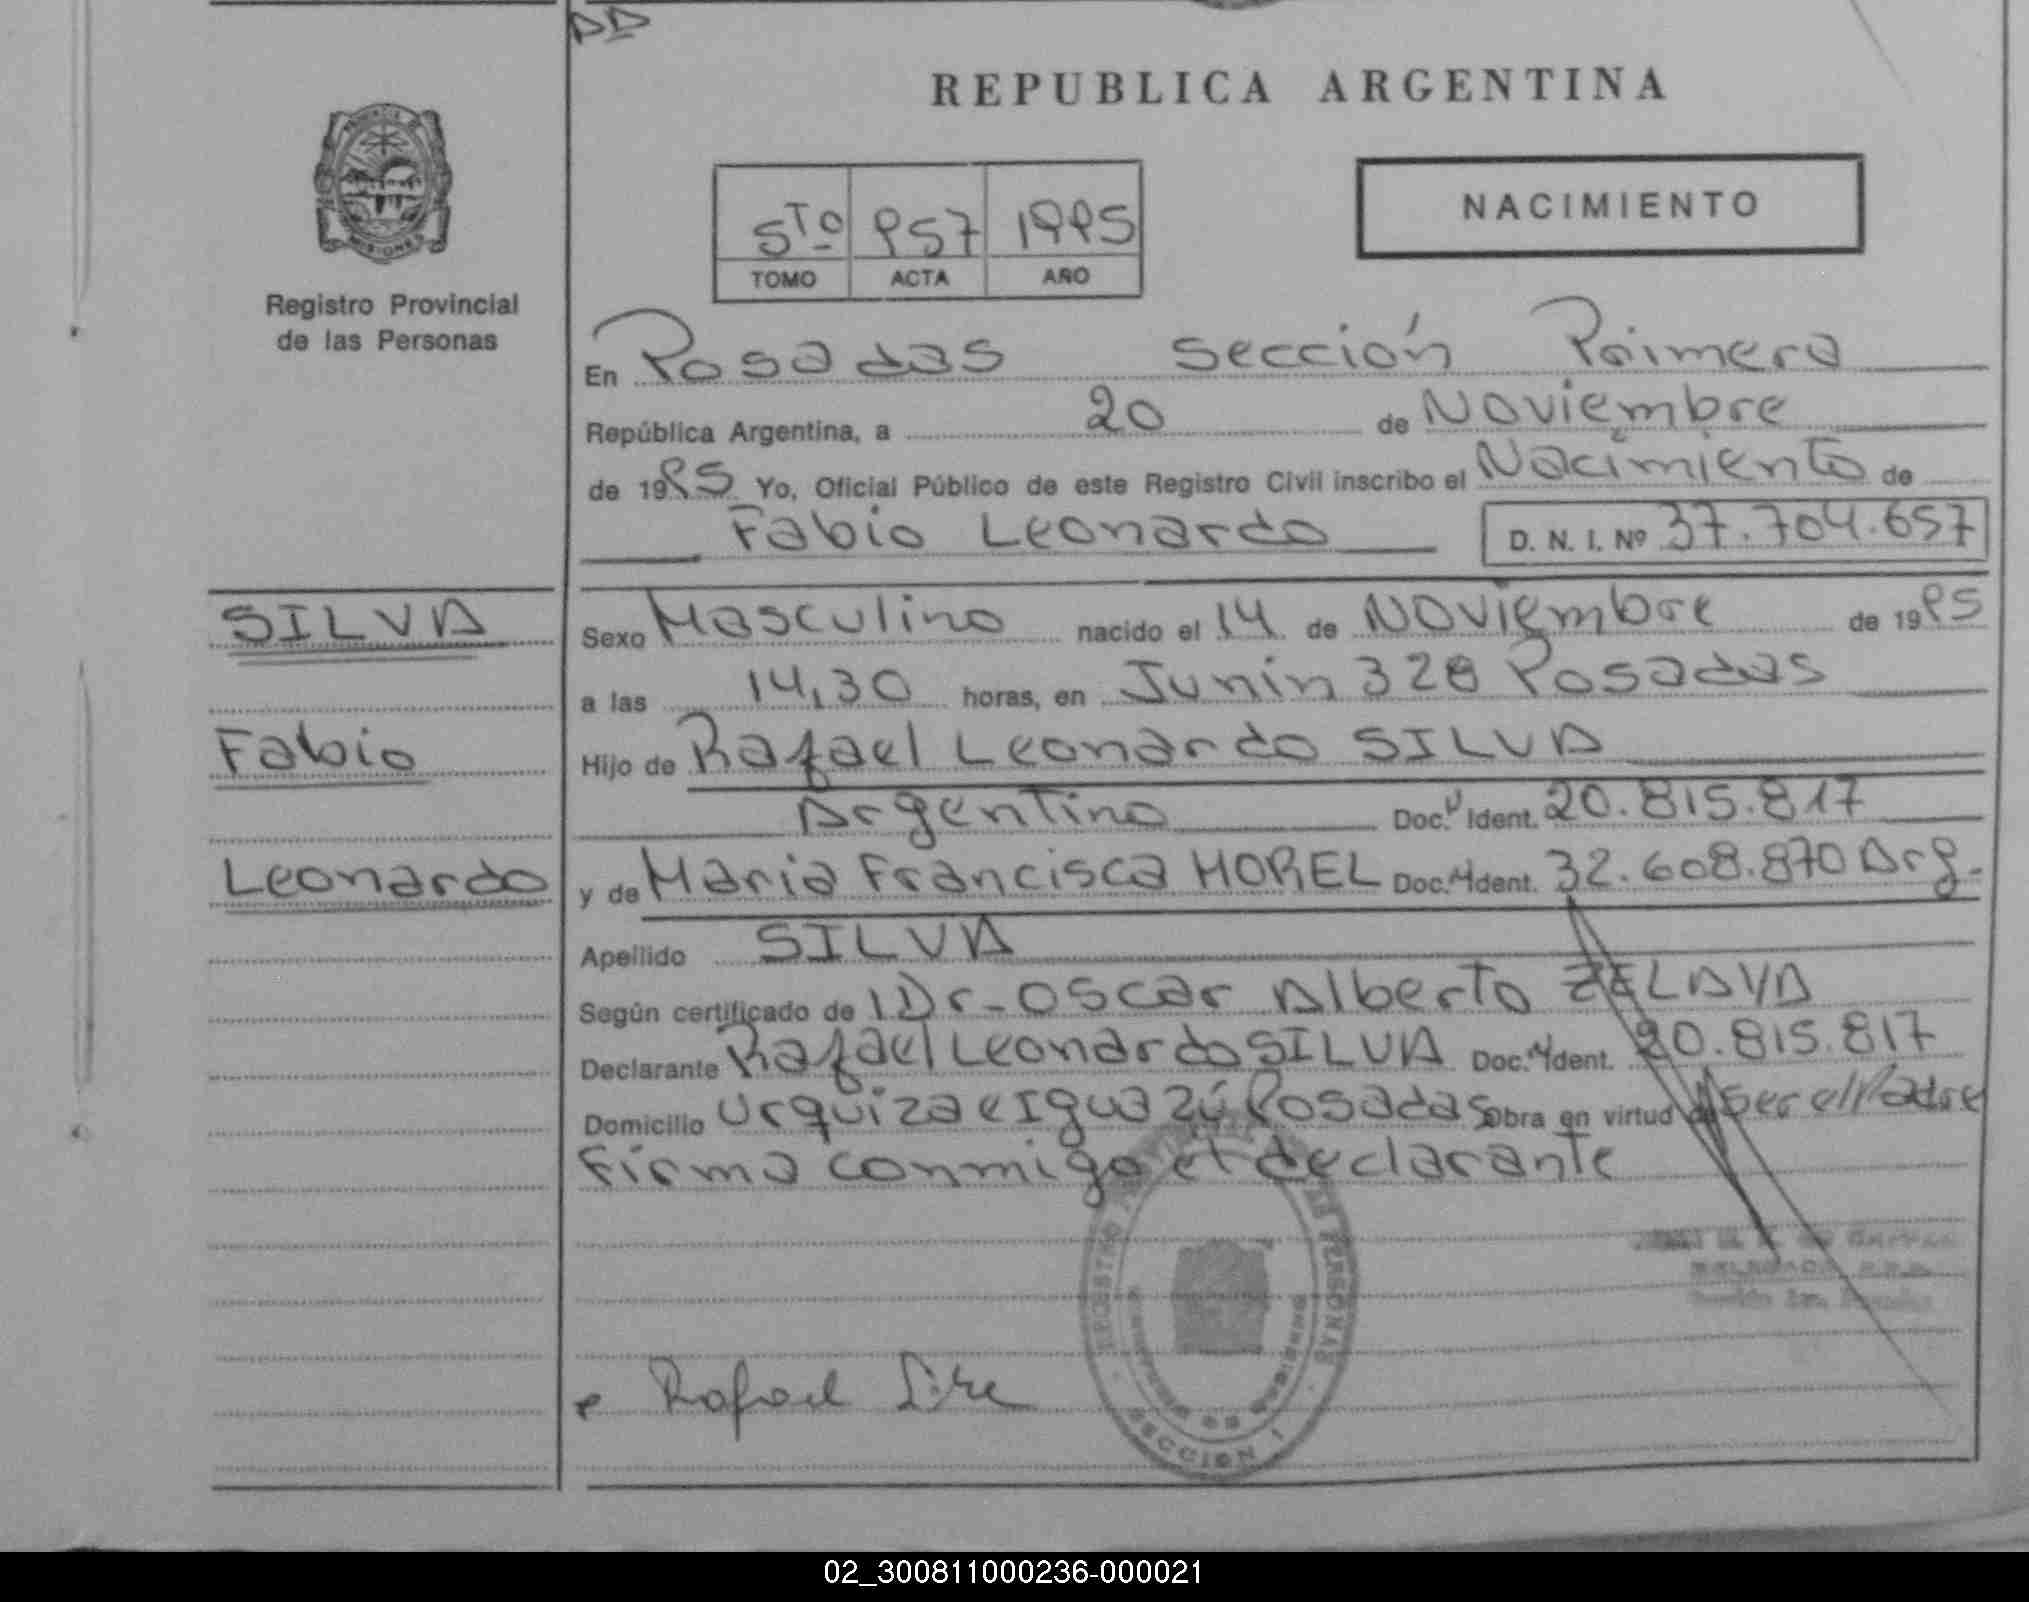 DD
REPUBLICA ARGENTINA
NACIMIENTO
5to 957 1995
TOMO ACTA AÑO
MISIONES
Registro Provincial
de las Personas
En Posadas Sección Primera
República Argentina, a 20 de Noviembre
de 1995 Yo, Oficial Público de este Registro Civil inscribo el Nacimiento de
Fabio Leonardo D. N. I. Nº 37.704.657
SILVA
Fabio
Leonardo
Sexo Masculino nacido el 14 de Noviembre de 1995
a las 14,30 horas, en Junin 328 Posadas
Hijo de Rafael Leonardo SILVA
Argentino Doc. Ident. 20.815.817
y de Maria Francisca MOREL Doc. Ident. 32.608.870 Arg.
Apellido SILVA
Según certificado de Dr. Oscar Alberto ZELAYA
Declarante Rafael Leonardo SILVA Doc. Ident. 20.815.817
Domicilio Urquiza e Iguazú Posadas Obra en virtud de ser el Padre
Firma conmigo el declarante
REGISTRO PROVINCIAL DE LAS PERSONAS
SECCION 1
Rafael Silva
02_300811000236-000021